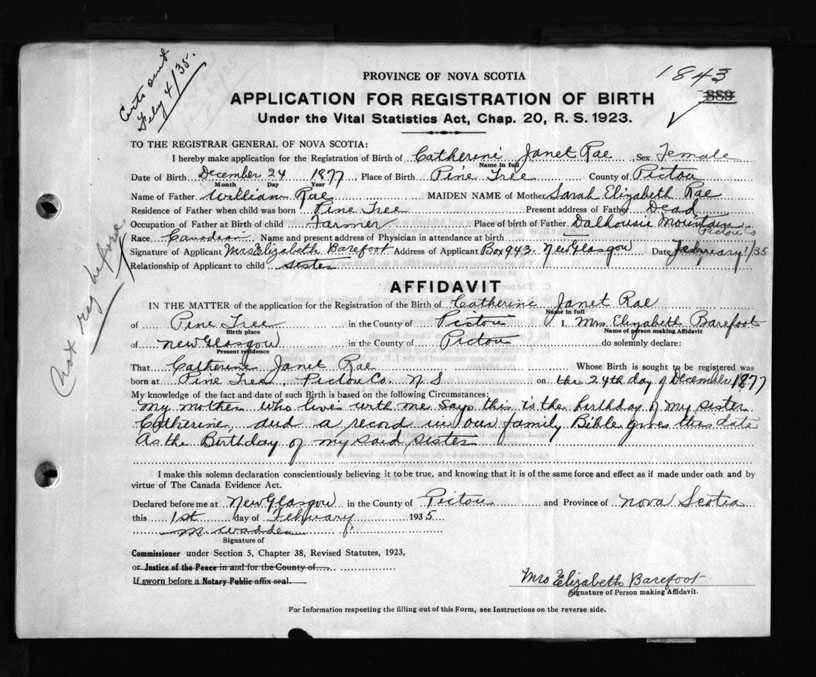 Certs out
Feby 4/35.
1843
889
PROVINCE OF NOVA SCOTIA
APPLICATION FOR REGISTRATION OF BIRTH
Under the Vital Statistics Act, Chap. 20, R. S. 1923.
TO THE REGISTRAR GENERAL OF NOVA SCOTIA:
I hereby make application for the Registration of Birth of Catherine Janet Rae Sex Female
Name in full
Date of Birth December 24 1877 Place of Birth Pine Tree County of Pictou
Month Day Year
Name of Father William Rae MAIDEN NAME of Mother Sarah Elizabeth Rae
Residence of Father when child was born Pine Tree Present address of Father Dead
Occupation of Father at Birth of child Farmer Place of birth of Father Dalhousie Mountain
Pictou Co
Race Canadian Name and present address of Physician in attendance at birth
Signature of Applicant Mrs Elizabeth Barefoot Address of Applicant Box 943 New Glasgow Date February 1/35
Relationship of Applicant to child sister
Not reg before
AFFIDAVIT
IN THE MATTER of the application for the Registration of the Birth of Catherine Janet Rae
Name in full
of Pine Tree in the County of Pictou I, Mrs. Elizabeth Barefoot
Birth place Name of person making Affidavit
of New Glasgow in the County of Pictou do solemnly declare:
Present residence
That Catherine Janet Rae Whose Birth is sought to be registered was
born at Pine Tree, Pictou Co. N S on the 24th day of December 1877
My knowledge of the fact and date of such Birth is based on the following Circumstances:
My mother who lives with me says this is the birthday of my sister
Catherine, and a record in our family Bible gives this date
As the Birthday of my said sister
I make this solemn declaration conscientiously believing it to be true, and knowing that it is of the same force and effect as if made under oath and by
virtue of The Canada Evidence Act.
Declared before me at New Glasgow in the County of Pictou and Province of Nova Scotia
this 1st day of February 1935
Signature of
Commissioner under Section 5, Chapter 38, Revised Statutes, 1923,
or Justice of the Peace in and for the County of
If sworn before a Notary Public affix seal.
Mrs Elizabeth Barefoot
Signature of Person making Affidavit.
For Information respecting the filling out of this Form, see Instructions on the reverse side.